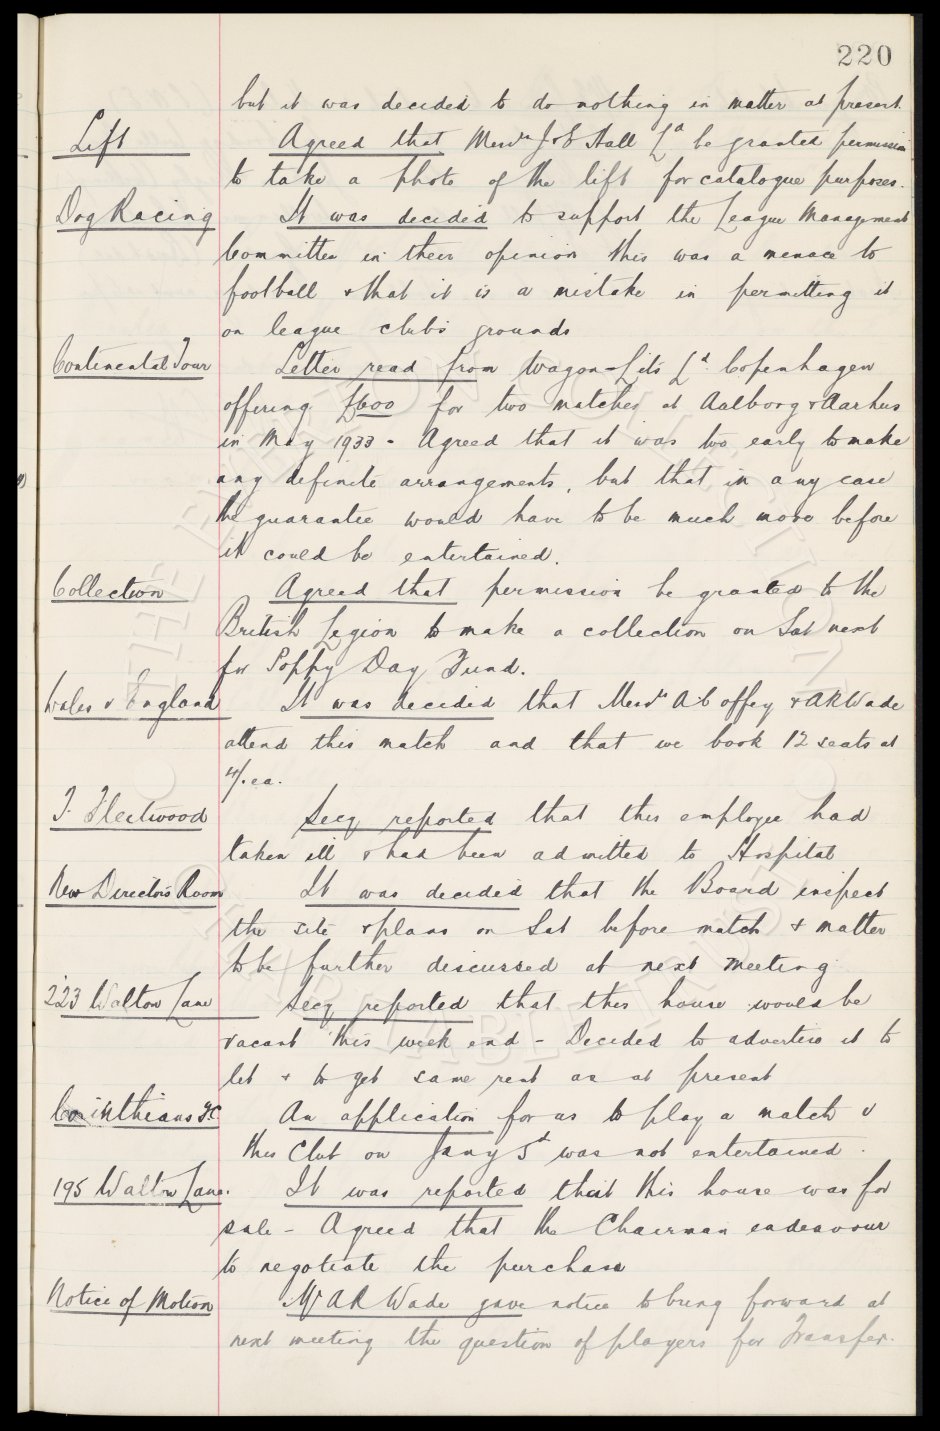 220
but it was decided to do nothing in matter at present.
Lift
Agreed that Messrs J & E Hall Ld be granted permission
to take a photo of the lift for catalogue purposes.
Dog Racing
It was decided to support the League Management
Committee in their opinion this was a menace to
football & that it is a mistake in permitting it
on league clubs grounds
Continental Tour
Letter read from Wagon-Lits Ld Copenhagen
offering £600 for two matches at Aalborg & Aarhus
in May 1933 - Agreed that it was too early to make
any definite arrangements, but that in any case
the guarantee would have to be much more before
it could be entertained.
Collection
Agreed that permission be granted to the
British Legion to make a collection on Sat next
for Poppy Day Fund.
Wales v England
It was decided that Messrs A Coffey & AR Wade
attend this match and that we book 12 seats at
4/. ea.
T. Fleetwood
Secy reported that this employee had
taken ill & had been admitted to Hospital
New Directors Room
It was decided that the Board inspect
the site & plans on Sat before match & matter
to be further discussed at next meeting
223 Walton Lane
Secy reported that this house would be
vacant this week end - Decided to advertise it to
let & to get same rent as at present
Corinthians F.C.
An application for us to play a match v
this Club on Jany 5th was not entertained.
195 Walton Lane.
It was reported that this house was for
sale - Agreed that the Chairman endeavour
to negotiate the purchase
Notice of Motion
Mr AR Wade gave notice to bring forward at
next meeting the question of players for Transfer.